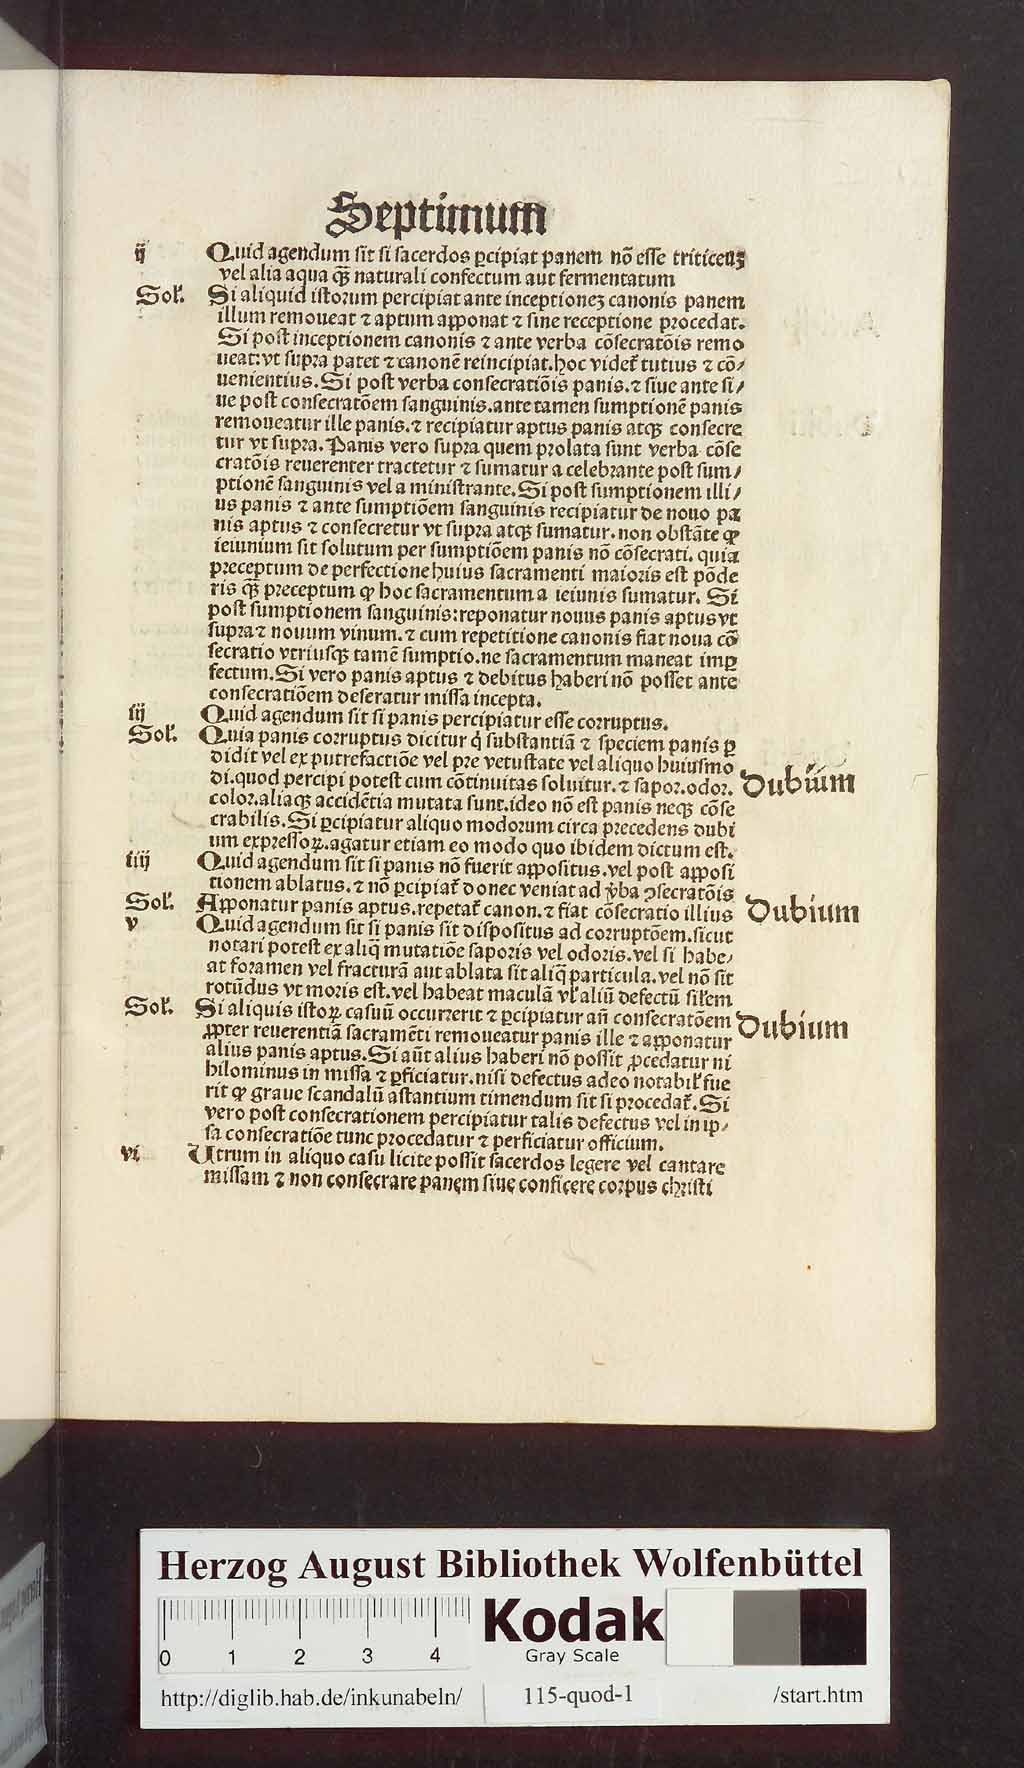 Septimum
ij Quid agendum sit si sacerdos ꝑcipiat panem nō esse triticeuʒ
vel alia aqua qꝫ naturali confectum aut fermentatum
Sol'. Si aliquid istorum percipiat ante inceptioneʒ canonis panem
illum remoueat ⁊ aptum apponat ⁊ sine receptione procedat.
Si post inceptionem canonis ⁊ ante verba cōsecratōis remo
ueat: vt supra patet ⁊ canonē reincipiat. hoc videt᷑ tutius ⁊ cō/
uenientius. Si post verba consecratiōis panis. ⁊ siue ante si/
ue post consecratōem sanguinis. ante tamen sumptionē panis
remoueatur ille panis. ⁊ recipiatur aptus panis atqꝫ consecre
tur vt supra. Panis vero supra quem prolata sunt verba cōse
cratōis reuerenter tractetur ⁊ sumatur a celebrante post sum/
ptionē sanguinis vel a ministrante. Si post sumptionem illi/
us panis ⁊ ante sumptiōem sanguinis recipiatur de nouo pa
nis aptus ⁊ consecretur vt supra atqꝫ sumatur. non obstāte ꝙ
ieiunium sit solutum per sumptiōem panis nō cōsecrati. quia
preceptum de perfectione huius sacramenti maioris est pōde
ris qꝫ preceptum ꝙ hoc sacramentum a ieiunis sumatur. Si
post sumptionem sanguinis: reponatur nouus panis aptus vt
supra ⁊ nouum vinum. ⁊ cum repetitione canonis fiat noua cō
secratio vtriusqꝫ tamē sumptio. ne sacramentum maneat imꝑ
fectum. Si vero panis aptus ⁊ debitus haberi nō posset ante
consecratiōem deseratur missa incepta.
iij Quid agendum sit si panis percipiatur esse corruptus.
Sol'. Quia panis corruptus dicitur q̇ substantiā ⁊ speciem panis ꝑ
didit vel ex putrefactiōe vel pre vetustate vel aliquo huiusmo
di. quod percipi potest cum cōtinuitas soluitur. ⁊ sapor. odor. Dubium
color. aliaqꝫ accidētia mutata sunt. ideo nō est panis neqꝫ cōse
crabilis. Si ꝑcipiatur aliquo modorum circa precedens dubi
um expressoꝝ. agatur etiam eo modo quo ibidem dictum est.
iiij Quid agendum sit si panis nō fuerit appositus. vel post apposi
tionem ablatus. ⁊ nō ꝑcipiat᷑ donec veniat ad ṽba ꝯsecratōis
Sol'. Apponatur panis aptus. repetat᷑ canon. ⁊ fiat cōsecratio illius Dubium
v Quid agendum sit si panis sit dispositus ad corruptōem. sicut
notari potest ex aliq̄ mutatiōe saporis vel odoris. vel si habe/
at foramen vel fracturā aut ablata sit aliq̄ particula. vel nō sit
rotūdus vt moris est. vel habeat maculā vl' aliū defectū sil'em
Sol'. Si aliquis istoꝝ casuū occurrerit ⁊ ꝑcipiatur añ consecratōem Dubium
ꝓpter reuerentiā sacramēti remoueatur panis ille ⁊ apponatur
alius panis aptus. Si aūt alius haberi nō possit ꝓcedatur ni
hilominus in missa ⁊ ꝑficiatur. nisi defectus adeo notabil' fue
rit ꝙ graue scandalū astantium timendum sit si procedat᷑. Si
vero post consecrationem percipiatur talis defectus vel in ip/
sa consecratiōe tunc procedatur ⁊ perficiatur officium.
vi Utrum in aliquo casu licite possit sacerdos legere vel cantare
missam ⁊ non consecrare panem siue conficere corpus christi
Herzog August Bibliothek Wolfenbüttel
0 1 2 3 4
Kodak
Gray Scale
http://diglib.hab.de/inkunabeln/ 115-quod-1 /start.htm